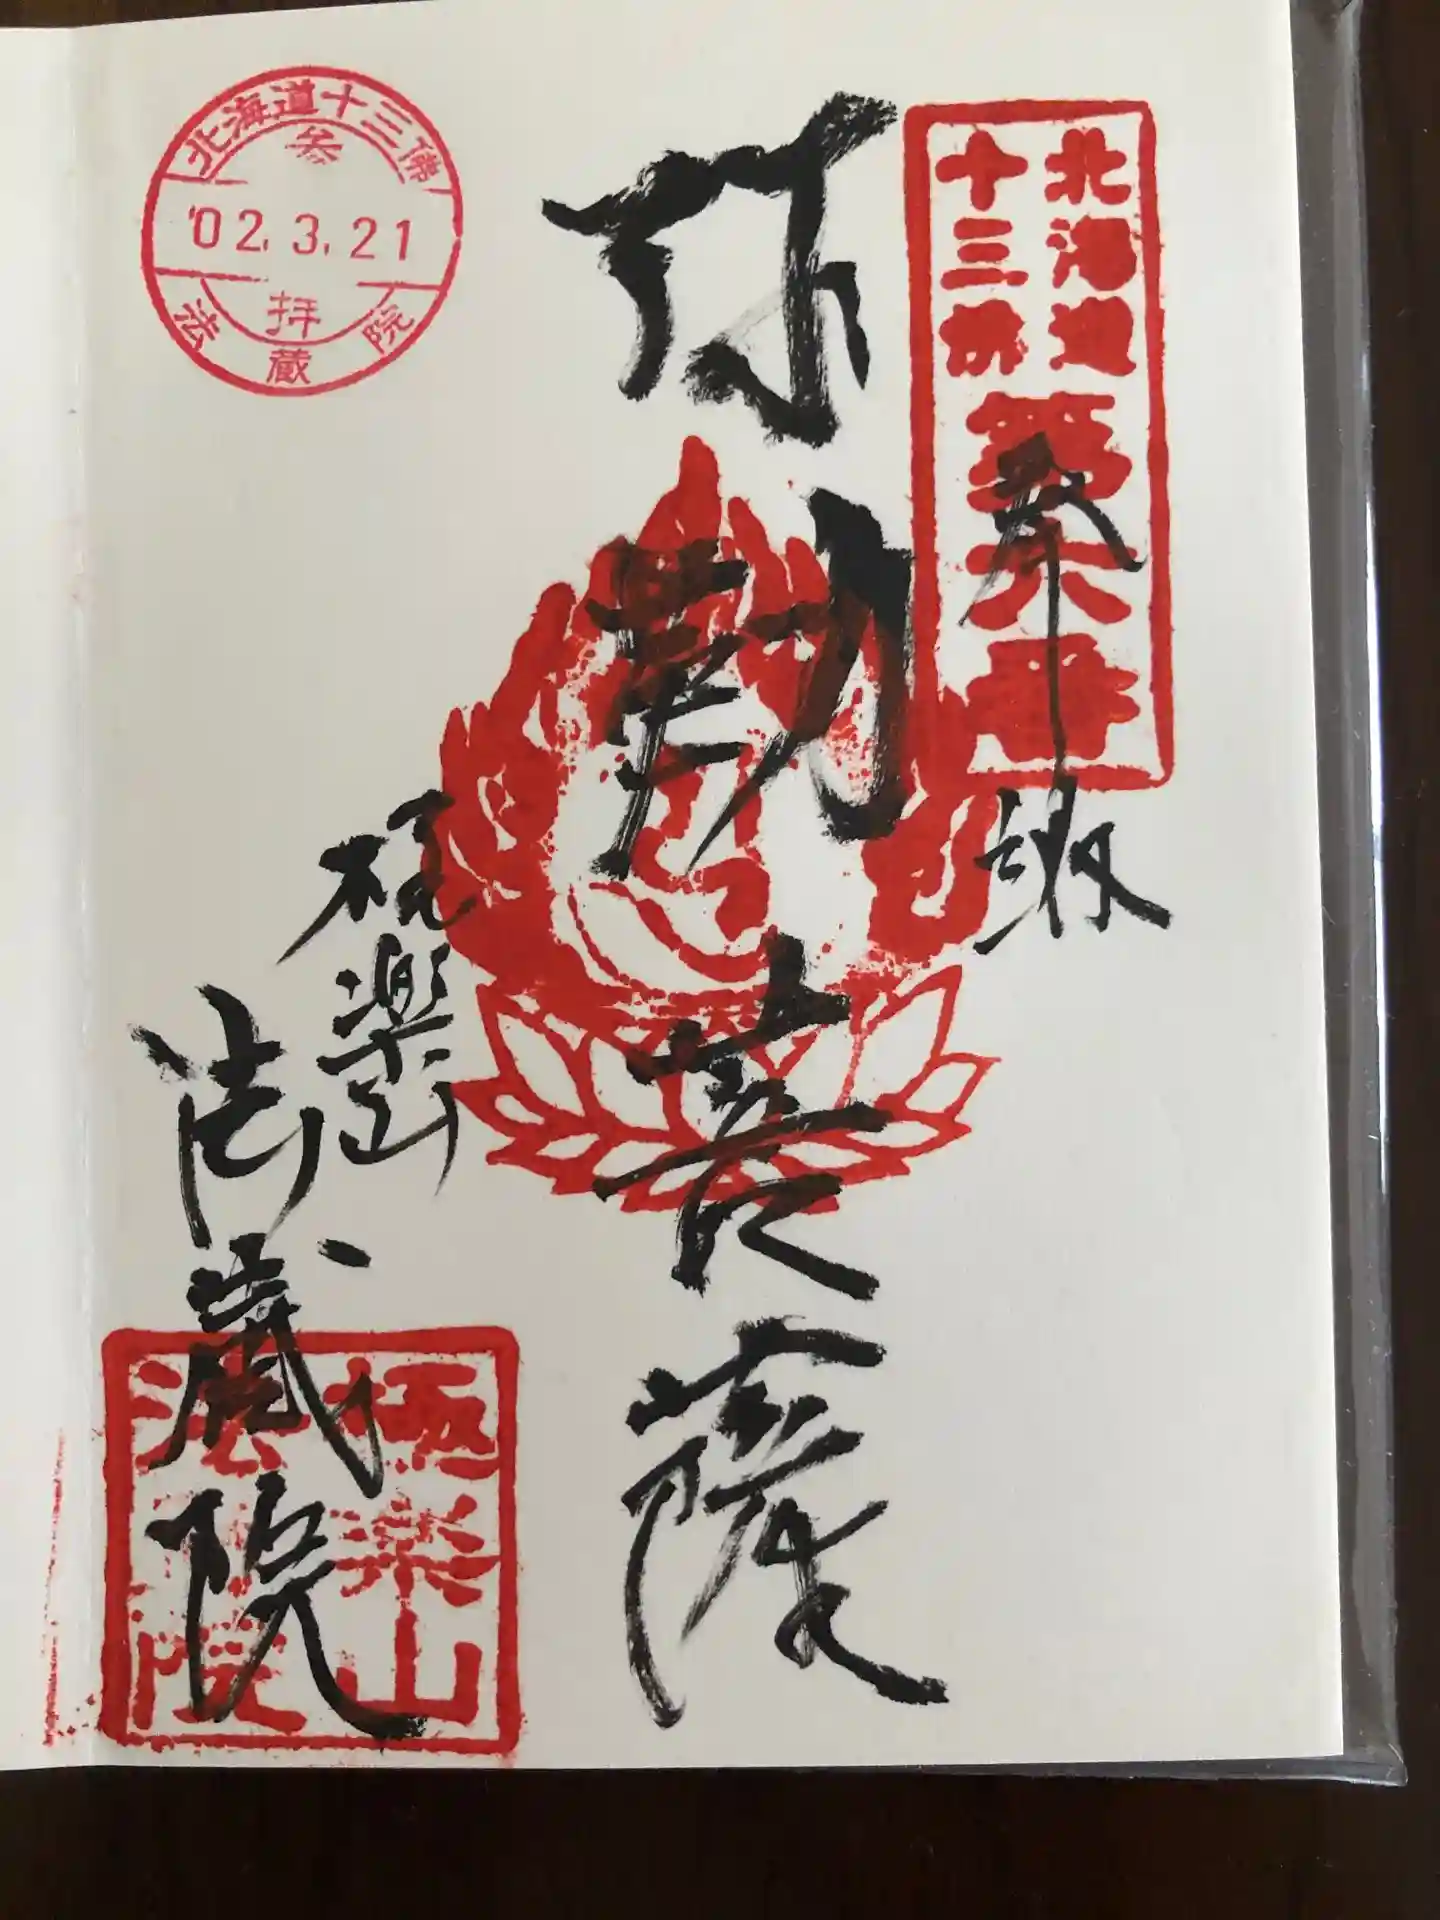 北海道
十三佛
第六番
奉納
弥勒菩薩
極楽山
法蔵院
北海道十三佛
参
'02.3.21
拝
法蔵院
極楽山
法蔵院